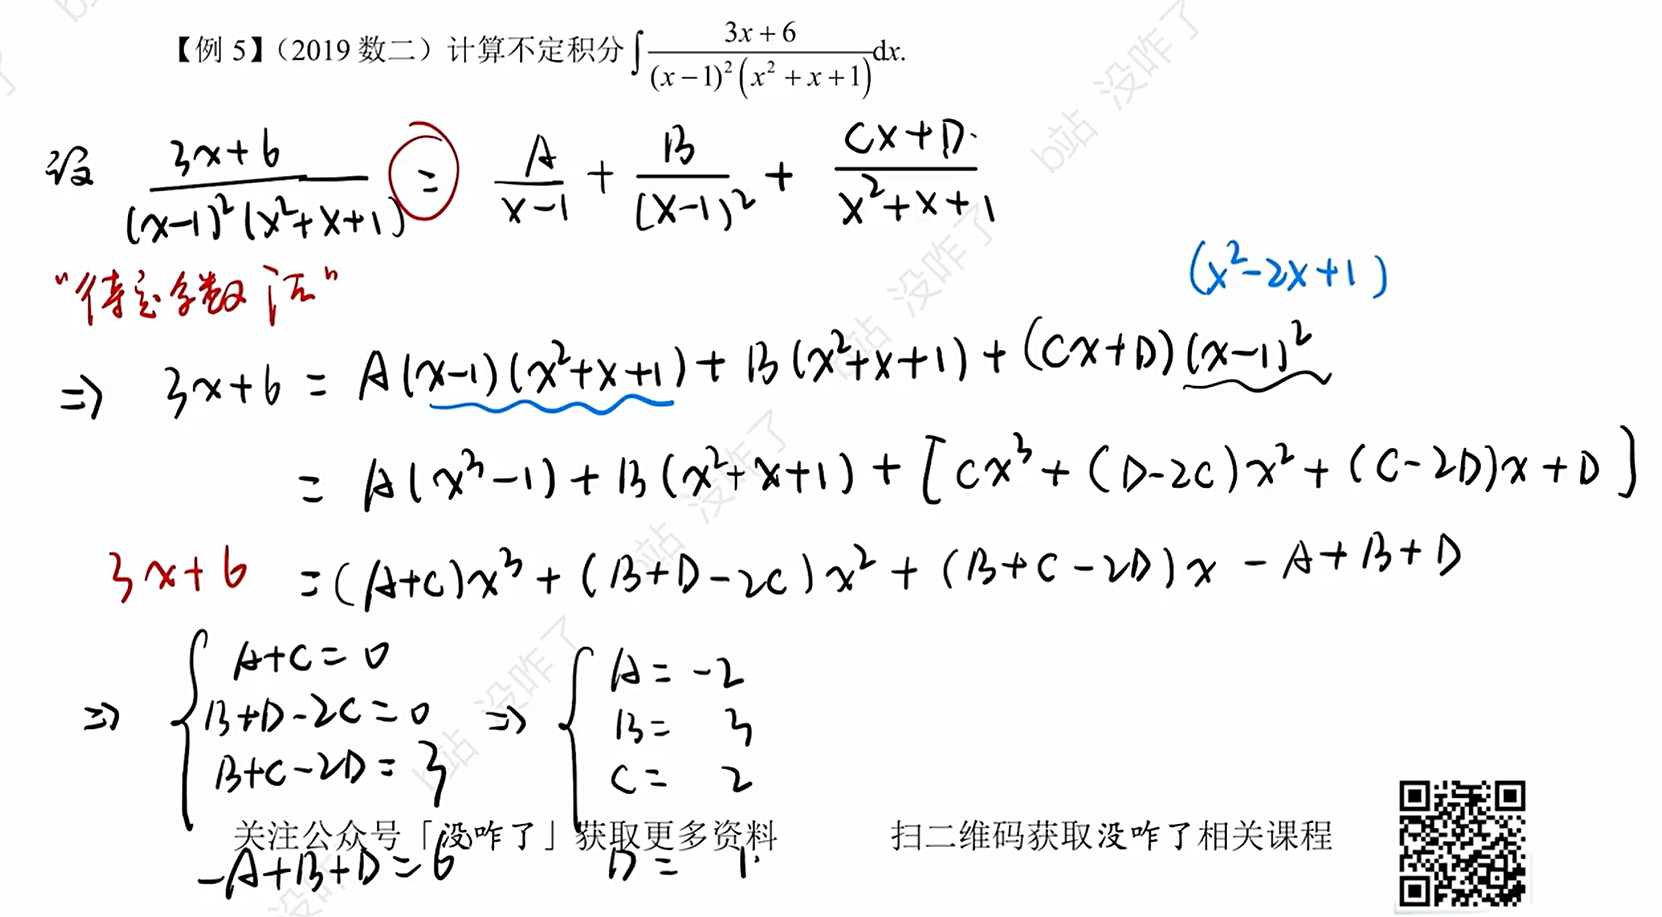 【例 5】（2019 数二）计算不定积分∫(3x+6)/((x−1)²(x²+x+1))dx.
设 (3x+6)/((x−1)²(x²+x+1)) = A/(x−1) + B/(x−1)² + (Cx+D)/(x²+x+1)
"待定系数法"
(x²−2x+1)
⇒ 3x+6 = A(x−1)(x²+x+1)+B(x²+x+1)+(Cx+D)(x−1)²
= A(x³−1)+B(x²+x+1)+[Cx³+(D−2C)x²+(C−2D)x+D]
3x+6 =(A+C)x³+(B+D−2C)x²+(B+C−2D)x −A+B+D
⇒ { A+C=0 ⇒ { A= −2
B+D−2C=0 B= 3
B+C−2D=3 C= 2
−A+B+D=6 D= 1.
关注公众号「没咋了」获取更多资料 扫二维码获取没咋了相关课程
b站 没咋了
b站 没咋了
b站 没咋了
b站 没咋了
b站 没咋了
没咋了